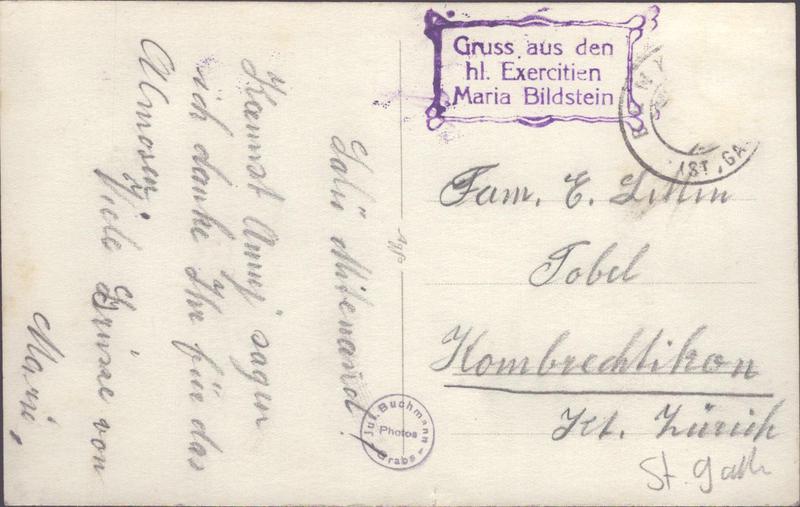 Gruss aus den
hl. Exercitien
Maria Bildstein
ST. GA
Fam. E.
Tobel
Hombrechtikon
Kt. Zürich
St. Gall
Salü Mitenand!
Kannst Anny sagen
ich danke Ihr für das
Almosen,
Viele Grüsse von
Marie,
Jul. Buchmann
Photos
Grabs